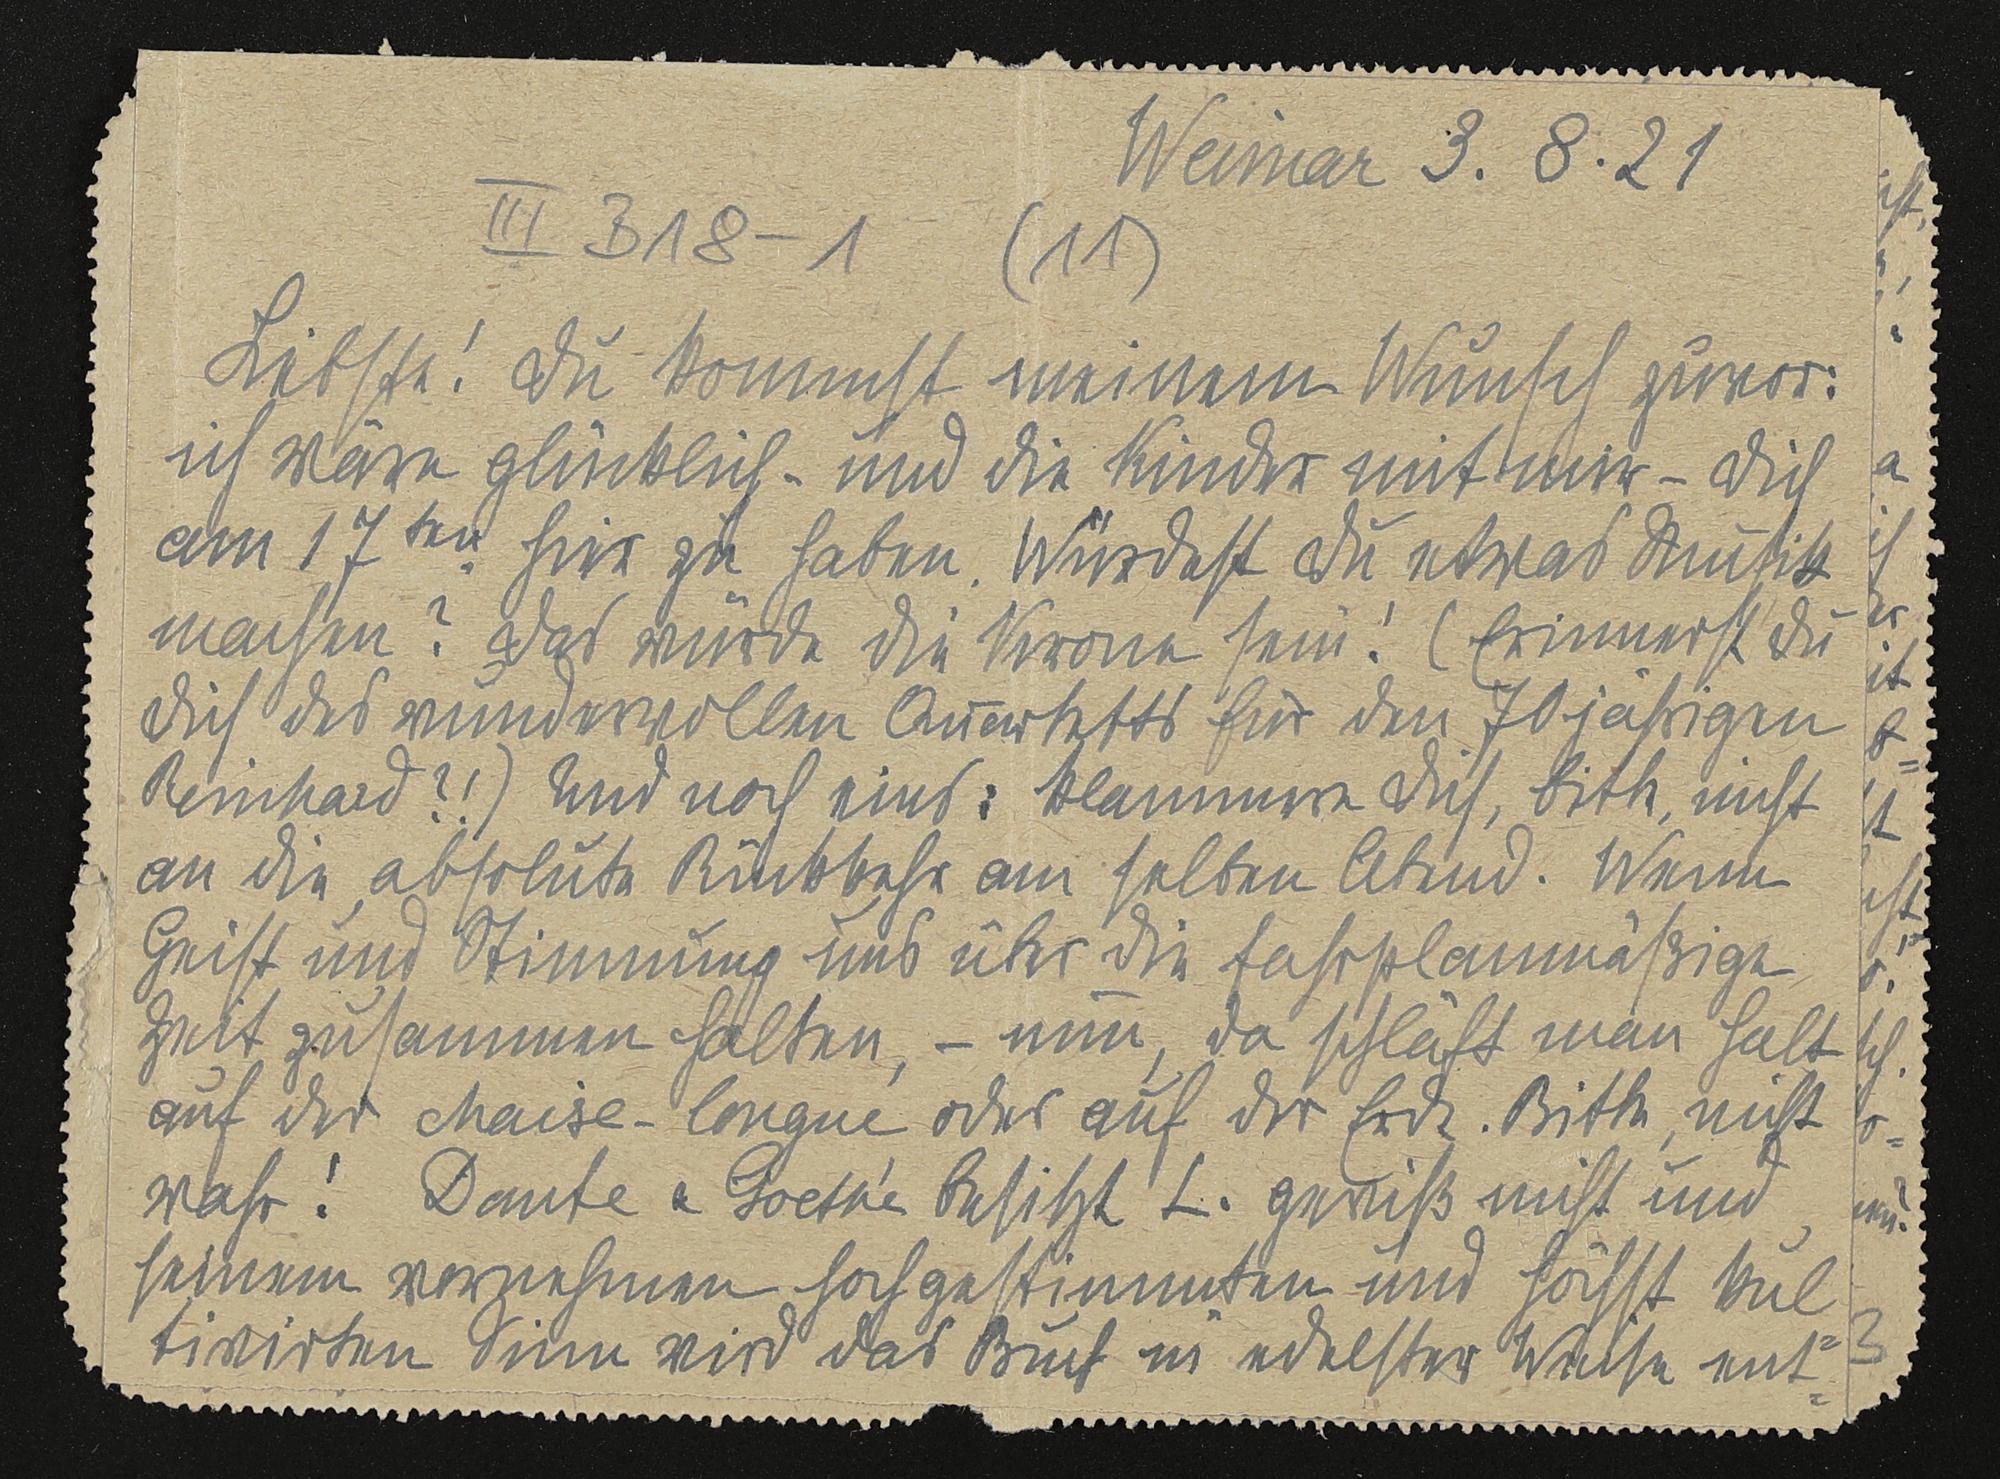 Weimar 3. 8. 21
III B18-1 (11)
Liebste! Du kommst meinem Wunsch zuvor:
ich wäre glücklich - und die Kinder mit mir - Dich
am 17ten hier zu haben. Würdest Du etwas Musik
machen? Das würde die Krone sein! (Erinnerst Du
Dich des wundervollen Quartetts für den 70jährigen
Reinhard?!) Und noch eins: klammere Dich, bitte, nicht
an die absolute Rückkehr am selben Abend. Wenn
Geist und Stimmung uns über die fahrplanmäßige
Zeit zusammen halten, - nun, da schläft man halt
auf der chaise-longue oder auf der Erde. Bitte, nicht
wahr! Dante & Goethe besitzt L. gewiß nicht und
seinem vornehmen hochgestimmten und höchst kul
tivirten Sinn wird das Buch in edelster Weise ent=
3